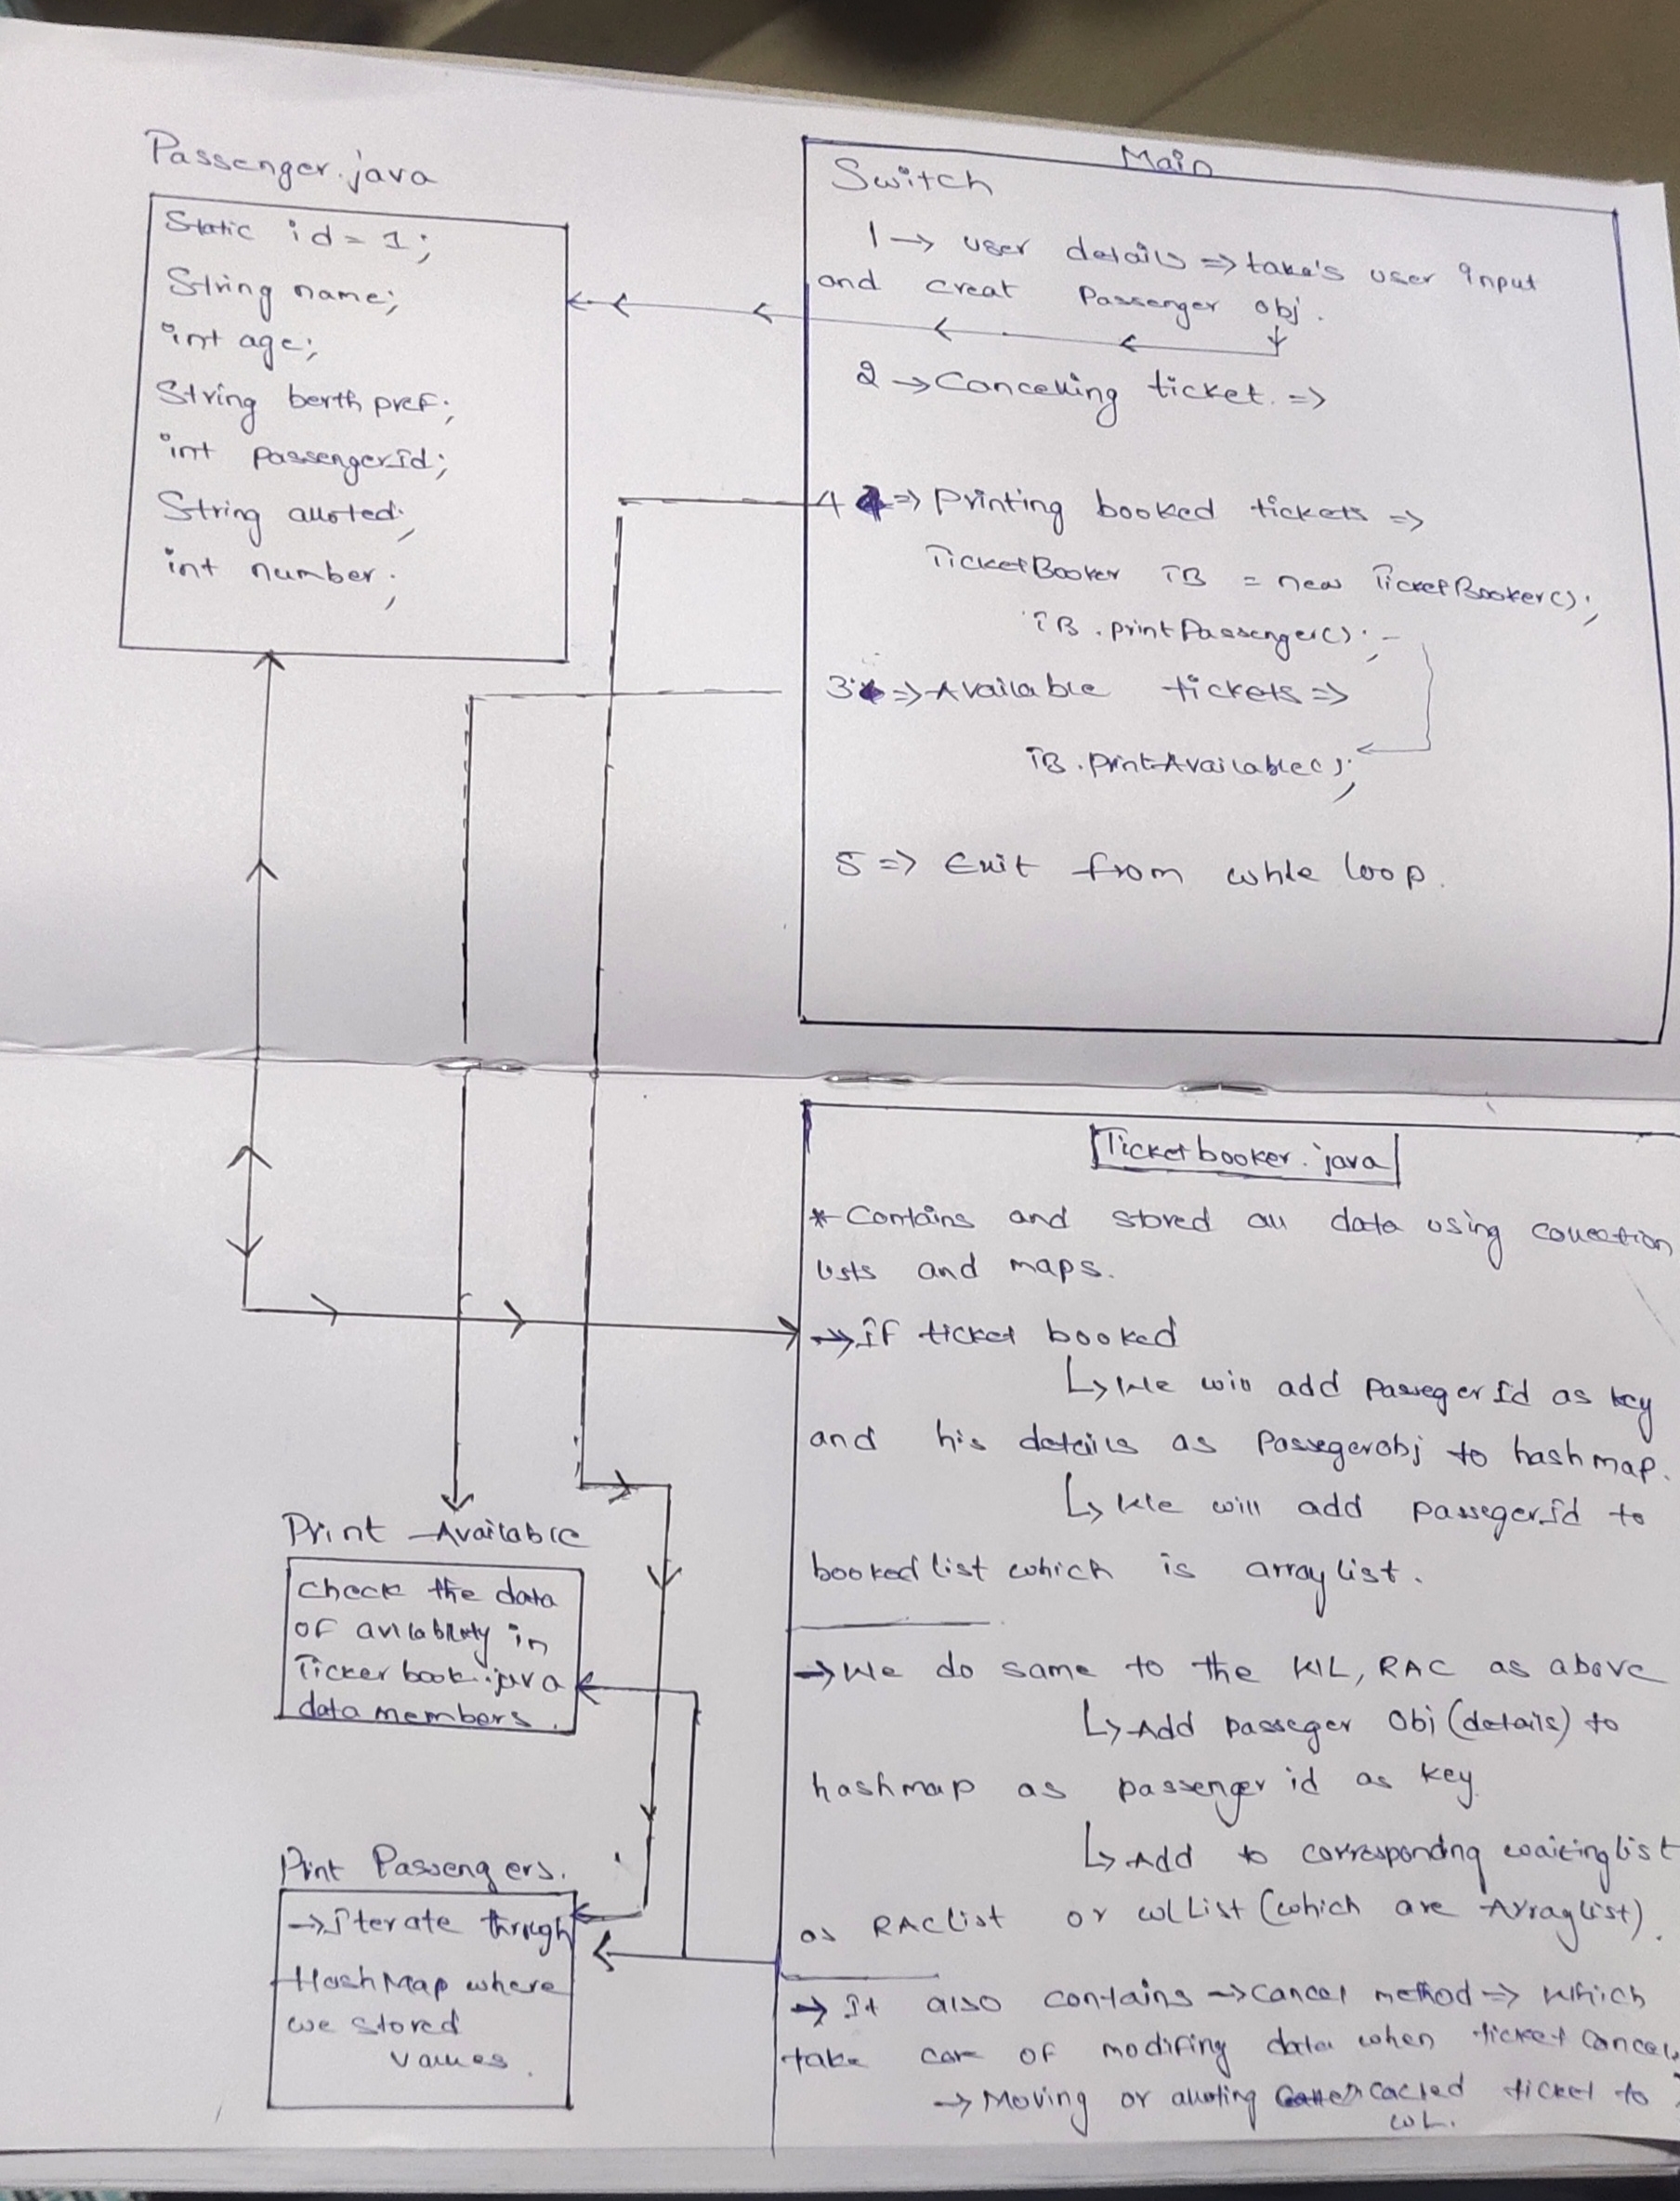 Passenger.java
Static id = 1;
String name;
int age;
String berth pref;
int passengerId;
String alloted;
int number;
Main
Switch
1 → user details ⇒ take's user input
and creat Passenger obj.
2 → Cancelling ticket. ⇒
4 ⇒ Printing booked tickets ⇒
TicketBooker TB = new TicketBooker();
TB.printPassenger();
3 ⇒ Available tickets ⇒
TB.printAvailable();
5 ⇒ Exit from while loop.
Ticketbooker.java
* Contains and stored all data using collection
lists and maps.
→ If ticket booked
↳ We will add PassegerId as key
and his details as Passegerobj to hashmap.
↳ We will add passegerId to
booked list which is arraylist.
→ We do same to the WL, RAC as above
↳ Add passeger Obj (details) to
hashmap as passenger id as key
↳ Add to corresponding waitinglist
as RAClist or WLList (which are Arraylist).
→ It also contains → cancel method ⇒ which
take care of modifing data when ticket cancel
→ Moving or alloting cacled ticket to
WL.
Print Available
check the data
of avilablity in
Ticker book.java
data members.
Print Passengers.
→ Iterate through
HashMap where
we stored
values.